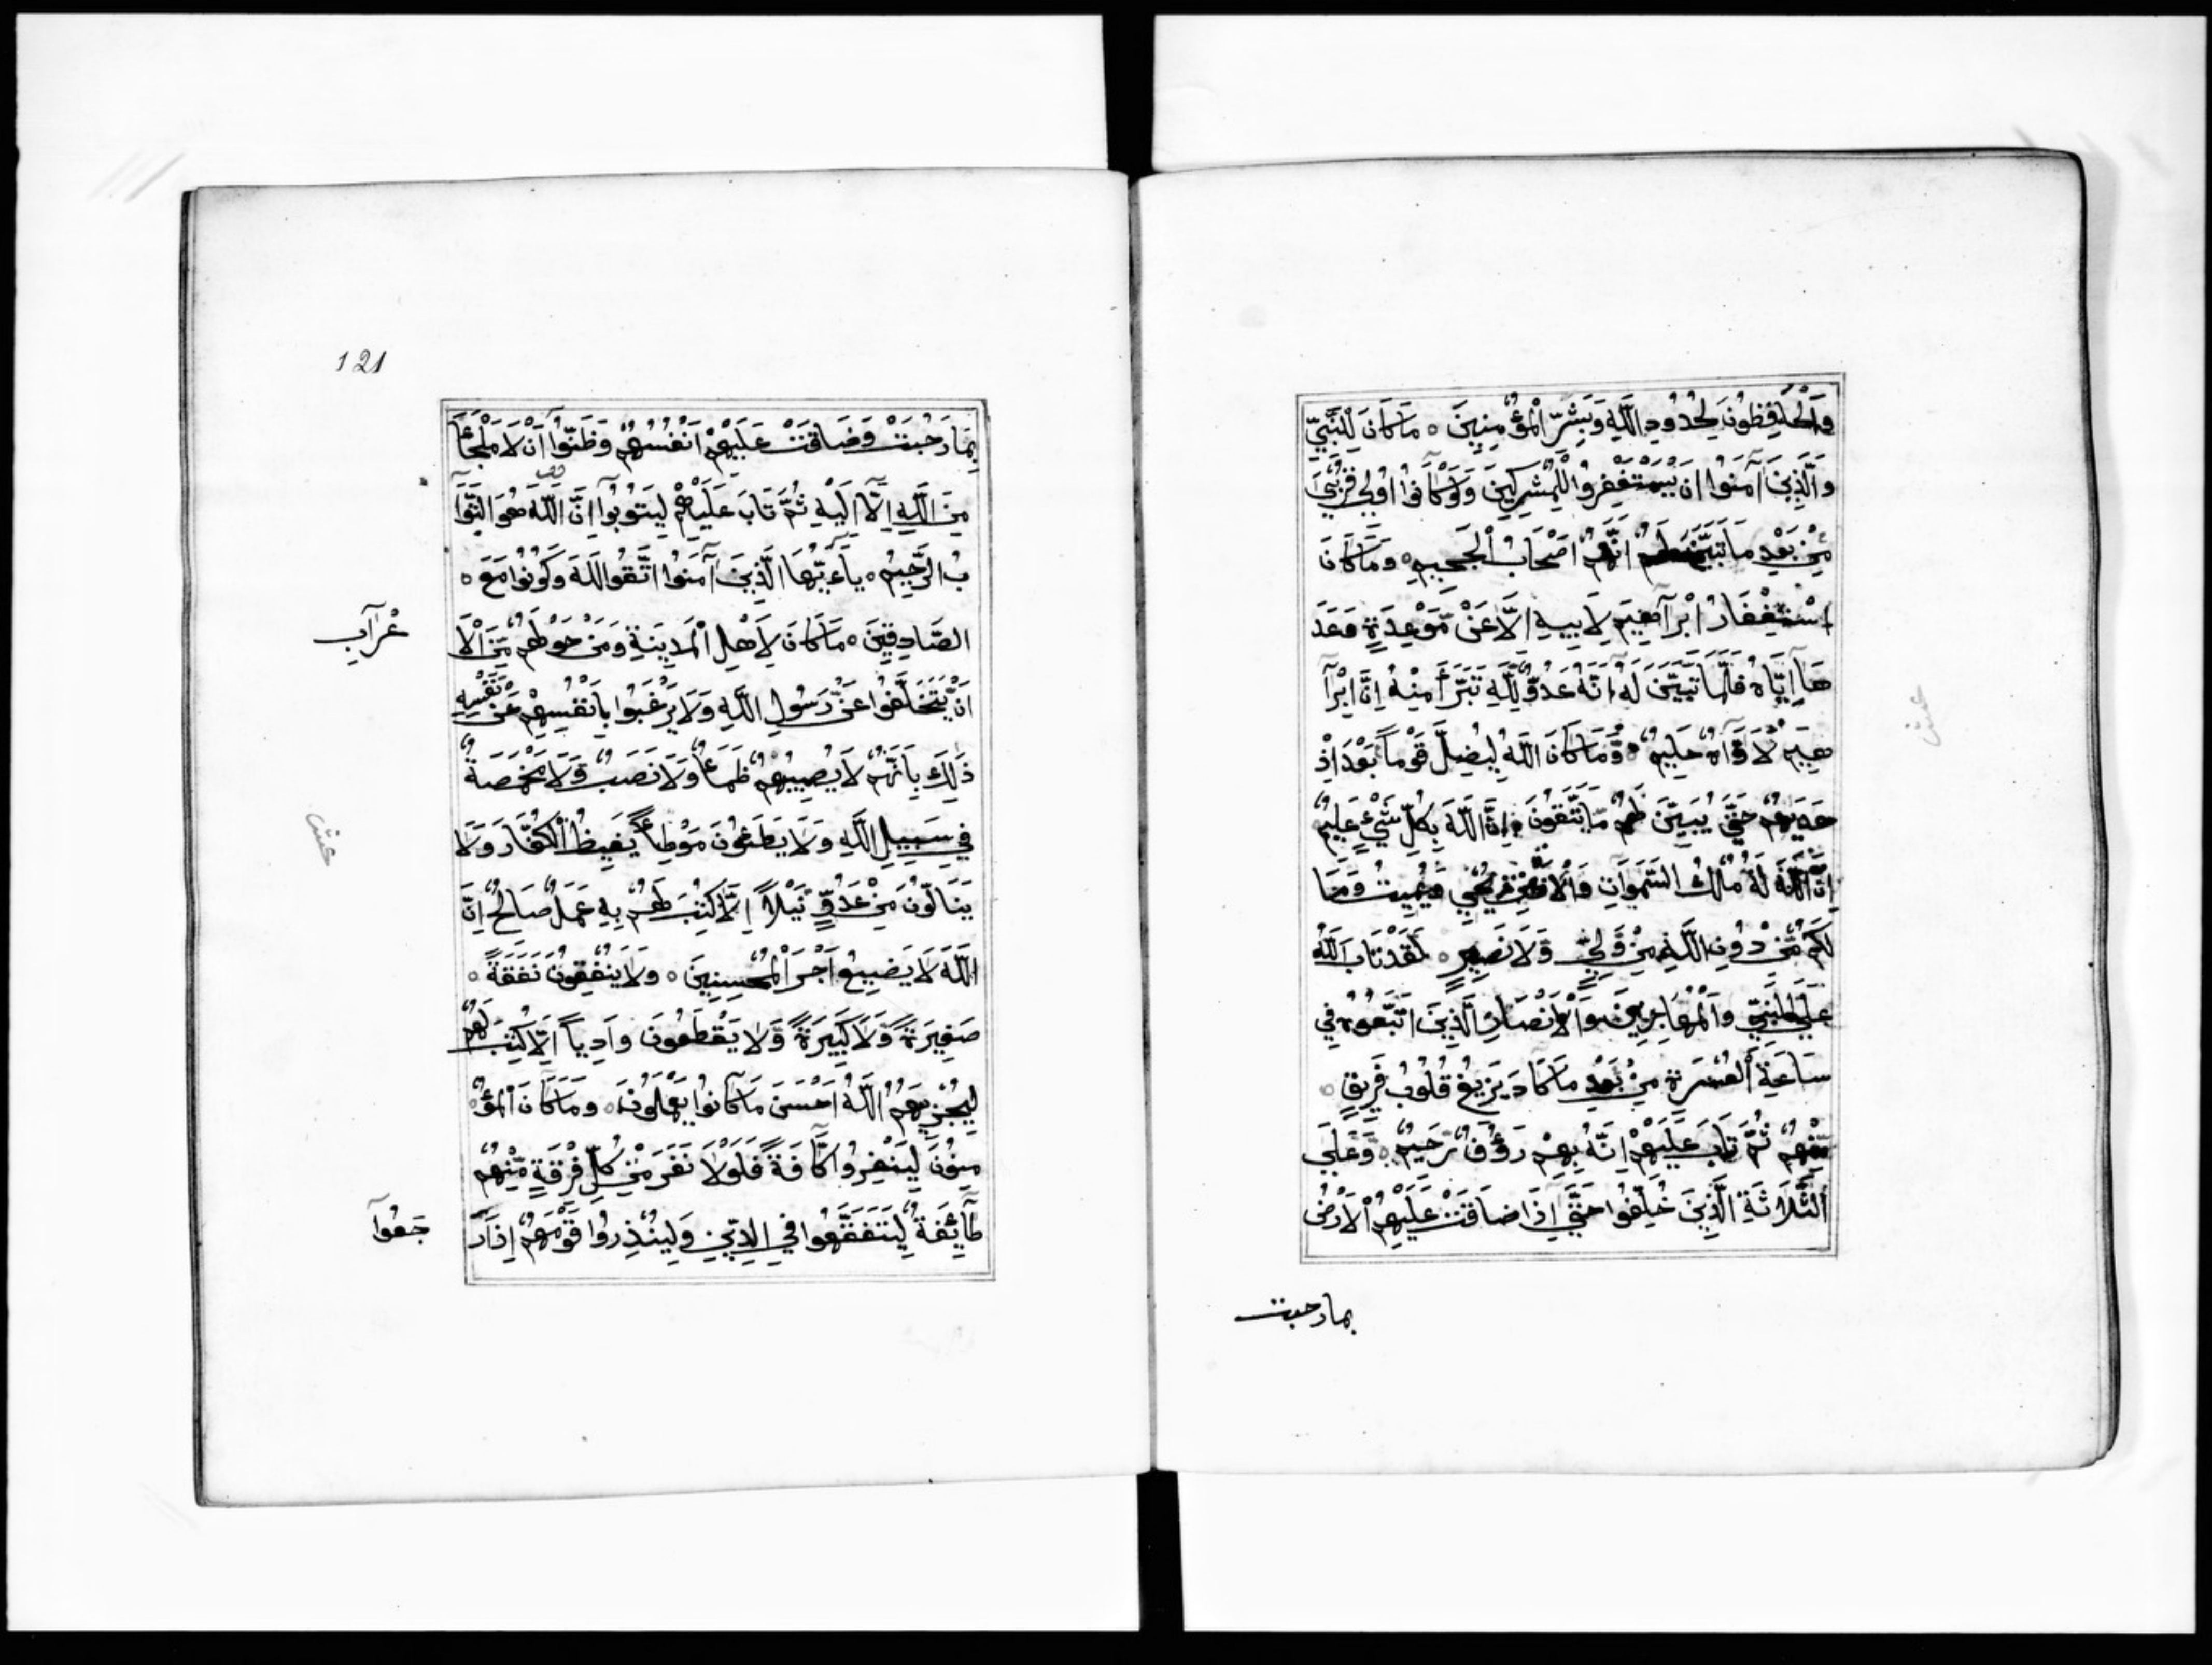 وَالْحَافِظُونَ لِحُدُودِ اللَّهِ وَبَشِّرِ الْمُؤْمِنِينَ ه مَا كَانَ لِلنَّبِيِّ
وَالَّذِينَ آمَنُوا اَنْ يَسْتَغْفِرُوا لِلْمُشْرِكِينَ وَلَوْ كَانُوا اُولِي قُرْبَى
مِنْ بَعْدِ مَا تَبَيَّنَ لَهُمْ اَنَّهُمْ اَصْحَابُ الْجَحِيمِ ه وَمَا كَانَ
اسْتِغْفَارُ اِبْرَآهِيمَ لِاَبِيهِ اِلَّا عَنْ مَّوْعِدَةٍ وَعَدَ
هَآ اِيَّاهُ فَلَمَّا تَبَيَّنَ لَهُ اَنَّهُ عَدُوٌّ لِلَّهِ تَبَرَّأَ مِنْهُ اِنَّ اِبْرَآ
هِيمَ لَاَوَّاهٌ حَلِيمٌ ه وَّمَا كَانَ اللَّهُ لِيُضِلَّ قَوْمًا بَعْدَ اِذْ
هَدَيهُمْ حَتَّى يُبَيِّنَ لَهُمْ مَّا يَتَّقُونَ اِنَّ اللَّهَ بِكُلِّ شَيْءٍ عَلِيمٌ
اِنَّ اللَّهَ لَهُ مُلْكُ السَّمَوَاتِ وَالْاَرْضِ يُحْيِي وَيُمِيتُ وَمَا
لَكُمْ مِّنْ دُونِ اللَّهِ مِنْ وَّلِيٍّ وَّلَا نَصِيرٍ ه لَقَدْ تَابَ اللَّهُ
عَلَى النَّبِيِّ وَالْمُهَاجِرِينَ وَالْاَنْصَارِ الَّذِينَ اتَّبَعُوهُ فِي
سَاعَةِ الْعُسْرَةِ مِنْ بَعْدِ مَا كَادَ يَزِيغُ قُلُوبُ فَرِيقٍ ه
مِّنْهُمْ ثُمَّ تَابَ عَلَيْهِمْ اِنَّهُ بِهِمْ رَؤُفٌ رَّحِيمٌ ه وَّعَلَى
الثَّلَاثَةِ الَّذِينَ خُلِّفُوا حَتَّى اِذَا ضَاقَتْ عَلَيْهِمُ الْاَرْضُ
بمارحبت
121
بِمَا رَحُبَتْ وَضَاقَتْ عَلَيْهِمْ اَنْفُسُهُمْ وَظَنُّوا اَنْ لَا مَلْجَأَ
مِنَ اللَّهِ اِلَّا اِلَيْهِ ثُمَّ تَابَ عَلَيْهِمْ لِيَتُوبُوا اِنَّ اللَّهَ هُوَ التَّوَّا
بُ الرَّحِيمُ ه يَآءَيُّهَا الَّذِينَ آمَنُوا اتَّقُوا اللَّهَ وَكُونُوا مَعَ ه
الصَّادِقِينَ ه مَا كَانَ لِاَهْلِ الْمَدِينَةِ وَمَنْ حَوْلَهُمْ مِّنَ الْاَ
عْرَآبِ
اَنْ يَّتَخَلَّفُوا عَنْ رَّسُولِ اللَّهِ وَلَا يَرْغَبُوا بِاَنْفُسِهِمْ عَنْ نَّفْسِهِ
ذَلِكَ بِاَنَّهُمْ لَا يُصِيبُهُمْ ظَمَأٌ وَّلَا نَصَبٌ وَّلَا مَخْمَصَةٌ
فِي سَبِيلِ اللَّهِ وَلَا يَطَئُونَ مَوْطِئًا يَّغِيظُ الْكُفَّارَ وَلَا
يَنَالُونَ مِنْ عَدُوٍّ نَّيْلًا اِلَّا كُتِبَ لَهُمْ بِهِ عَمَلٌ صَالِحٌ اِنَّ
اللَّهَ لَا يُضِيعُ اَجْرَ الْمُحْسِنِينَ ه وَلَا يُنْفِقُونَ نَفَقَةً ه
صَغِيرَةً وَّلَا كَبِيرَةً وَّلَا يَقْطَعُونَ وَادِيًا اِلَّا كُتِبَ لَهُمْ
لِيَجْزِيَهُمُ اللَّهُ اَحْسَنَ مَا كَانُوا يَعْمَلُونَ ه وَمَا كَانَ الْمُؤْ
مِنُونَ لِيَنْفِرُوا كَآفَّةً فَلَوْلَا نَفَرَ مِنْ كُلِّ فِرْقَةٍ مِّنْهُمْ
طَآئِفَةٌ لِّيَتَفَقَّهُوا فِي الدِّينِ وَلِيُنْذِرُوا قَوْمَهُمْ اِذَا رَ
جَعُوآ